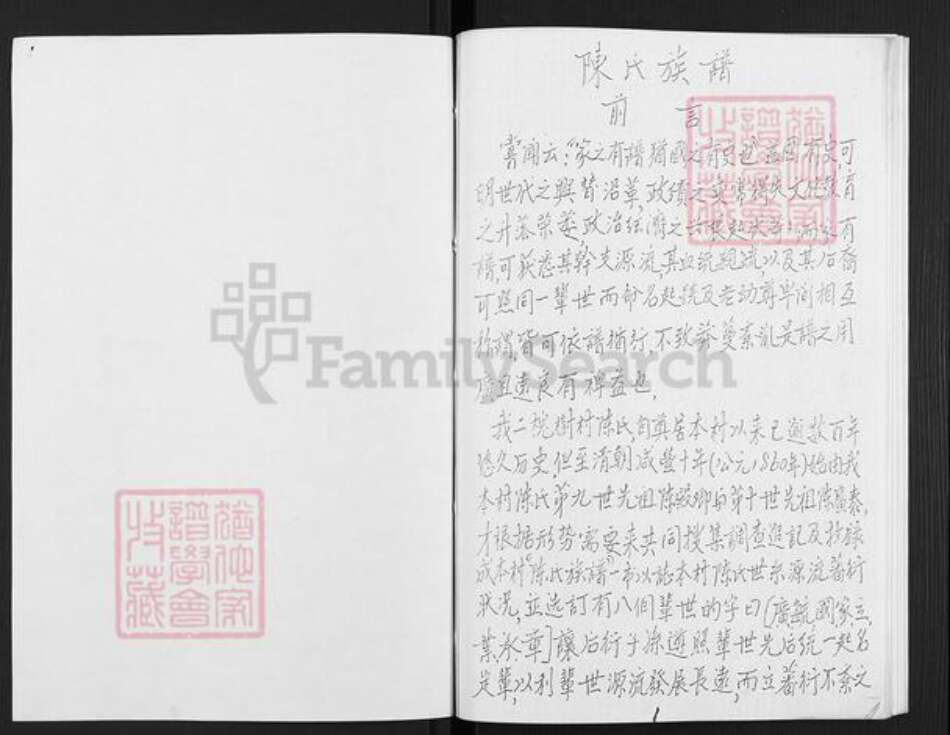 陳氏族譜
前言
嘗聞云:"家之有譜猶國之有史也"蓋國有史,可
明世代之興替沿革,政績之
之升落榮
譜,可获悉其幹支源流,其血統親疏,以及其后裔
可照同一輩世而命名起號及老幼尊卑间相互
称謂,皆可依譜循行,不致紊亂是譜之用
良有裨益也。
我二槐樹村陳氏,自奠居本村以来已逾数百年
悠久历史,但至清朝咸豐十年(公元1860年)始由我
本村陳氏第九世先祖陳 第十世先祖陳廣泰,
才根据形势需要来共同搜集調查進記及抄錄
成本村"陳氏族譜"一部以誌本村陳氏世系源流蕃衍
狀况,並选訂有八個輩世的字曰[廣毓國家立
業 華]讓后衍子孫遵照輩世先后統一起名
定輩,以利輩世源流發展長遠,而立蕃衍不紊之
1
猶他家
譜學會
收藏
FamilySearch